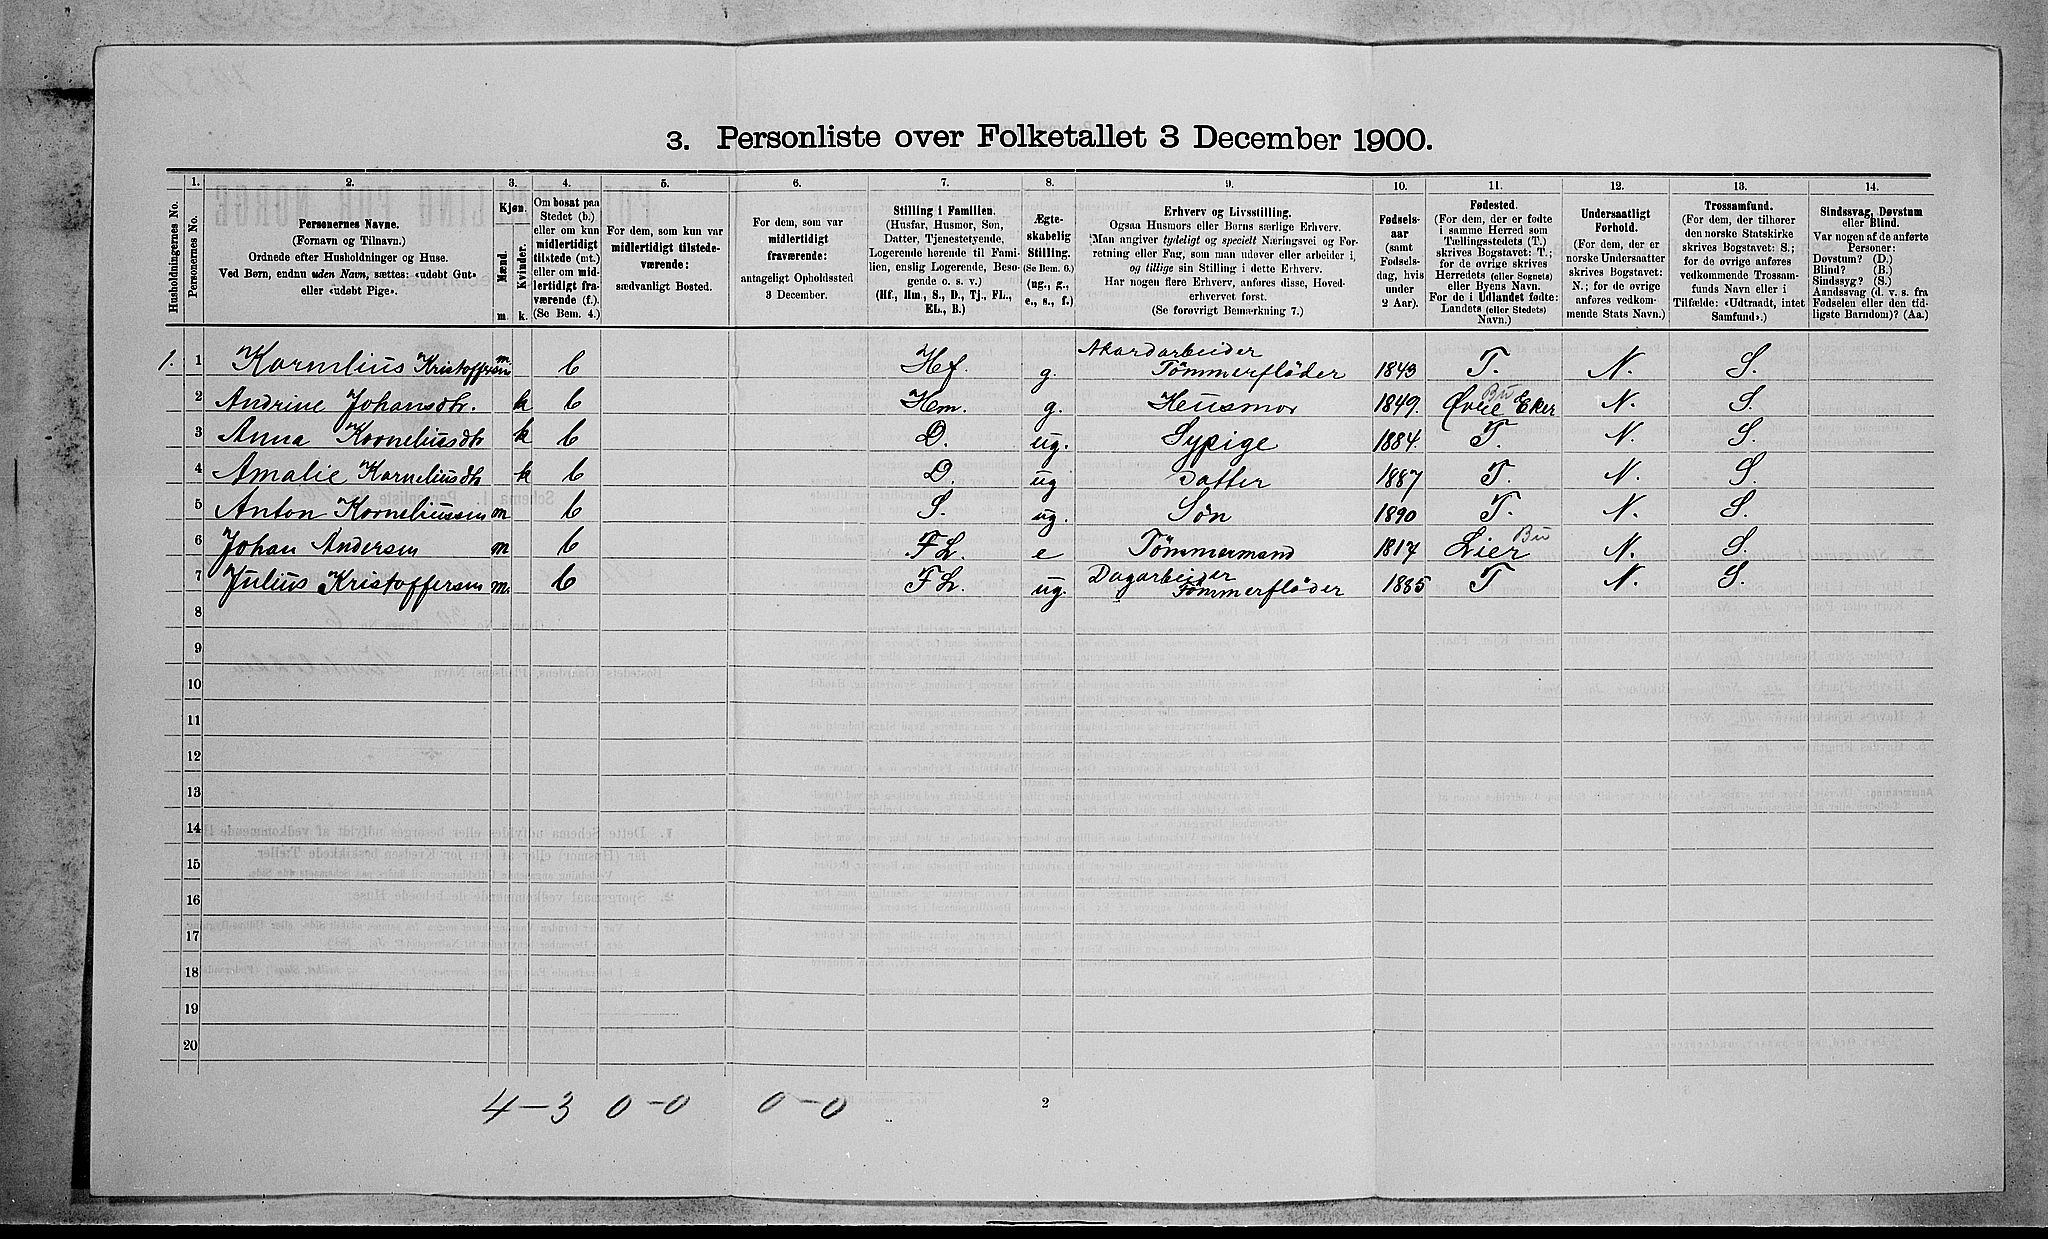 3. Personliste over Folketallet 3 December 1900.
1. 2. 3. 4. 5. 6. 7. 8. 9. 10. 11. 12. 13. 14.
Husholdningernes No.
Personernes No.
Personernes Navne.
(Fornavn og Tilnavn.)
Ordnede efter Husholdninger og Huse.
Ved Børn, endnu uden Navn, sættes: «udøbt Gut»
eller «udøbt Pige».
Kjøn.
Mænd.
Kvinder.
m. k.
Om bosat paa
Stedet (b.)
eller om kun
midlertidigt
tilstede (mt.)
eller om mid-
lertidigt fra-
værende (f.).
(Se Bem. 4.)
For dem, som kun var
midlertidigt tilstede-
værende:
sædvanligt Bosted.
For dem, som var
midlertidigt
fraværende:
antageligt Opholdssted
3 December.
Stilling i Familien.
(Husfar, Husmor, Søn,
Datter, Tjenestetyende,
Logerende hørende til Fami-
lien, enslig Logerende, Besø-
gende o. s. v.)
(Hf., Hm., S., D., Tj., FL.,
EL., B.)
Ægte-
skabelig
Stilling.
(Se Bem. 6.)
(ug., g.,
e., s., f.)
Erhverv og Livsstilling.
Ogsaa Husmors eller Børns særlige Erhverv.
(Man angiver tydeligt og specielt Næringsvei og For-
retning eller Fag, som man udøver eller arbeider i,
og tillige sin Stilling i dette Erhverv.
Har nogen flere Erhverv, anføres disse, Hoved-
erhvervet først.
(Se forøvrigt Bemærkning 7.)
Fødsels-
aar
(samt
Fødsels-
dag, hvis
under
2 Aar).
Fødested.
(For dem, der er fødte
i samme Herred som
Tællingsstedets (T.)
skrives Bogstavet: T.;
for de øvrige skrives
Herredets (eller Sognets)
eller Byens Navn.
For de i Udlandet fødte:
Landets (eller Stedets)
Navn.)
Undersaatligt
Forhold.
(For dem, der er
norske Undersaatter
skrives Bogstavet:
N.; for de øvrige
anføres vedkom-
mende Stats Navn.)
Trossamfund.
(For dem, der tilhører
den norske Statskirke
skrives Bogstavet: S.;
for de øvrige anføres
vedkommende Trossam-
funds Navn eller i
Tilfælde: «Udtraadt, intet
Samfund».)
Sindssvag, Døvstum
eller Blind.
Var nogen af de anførte
Personer:
Døvstum? (D.)
Blind? (B.)
Sindssyg? (S.)
Aandssvag (d. v. s. fra
Fødselen eller den tid-
ligste Barndom)? (Aa.)
1. 1 Kornelius Kristoffersen m b Hf. g. Akordarbeider Tømmerfløder 1843 T. N. S.
2 Andrine Johansdtr. k b Hm. g. Husmor 1849. Øvre Eker Bu N. S.
3 Anna Korneliusdtr k b D. ug. Sypige 1884. T. N. S.
4 Amalie Korneliusdtr k b D. ug Datter 1887 T. N. S.
5 Anton Korneliussen m b S. ug. Søn 1890 T. N. S.
6 Johan Andersen m b FL. e Tømmermand 1817 Lier Bu N. S.
7 Julius Kristoffersen m. b FL. ug. Dagarbeider Tømmerfløder 1885 T N. S.
8
9
10
11
12
13
14
15
16
17
18
19
20
4-3 0-0 0-0
2